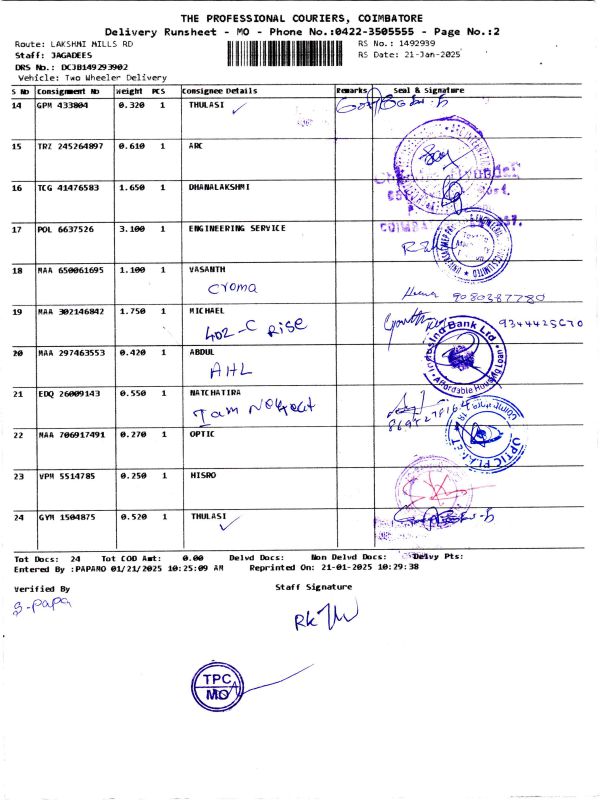 THE PROFESSIONAL COURIERS, COIMBATORE
Delivery Runsheet - MO - Phone No.:0422-3505555 - Page No.:2
Route: LAKSHMI MILLS RD RS No.: 1492939
Staff: JAGADEES RS Date: 21-Jan-2025
DRS No.: DCJB149293902
Vehicle: Two Wheeler Delivery
S No Consignment No Weight PCS Consignee Details Remarks Seal & Signature
14 GPM 433804 0.320 1 THULASI
15 TRZ 245264897 0.610 1 ARC
16 TCG 41476583 1.650 1 DHANALAKSHMI
17 POL 6637526 3.100 1 ENGINEERING SERVICE
18 MAA 650061695 1.100 1 VASANTH
croma 9080387780
19 MAA 302146842 1.750 1 MICHAEL
402-C Rise 9344425670
20 MAA 297463553 0.420 1 ABDUL
AHL
IndusInd Bank Ltd
Affordable Housing Loan
21 EDQ 26009143 0.550 1 NATCHATIRA
22 MAA 706917491 0.270 1 OPTIC
OPTIC PLANET
23 VPM 5514785 0.250 1 HISRO
24 GYM 1504875 0.520 1 THULASI
Tot Docs: 24 Tot COD Amt: 0.00 Delvd Docs: Non Delvd Docs: Delvy Pts:
Entered By :PAPAMO 01/21/2025 10:25:09 AM Reprinted On: 21-01-2025 10:29:38
Verified By Staff Signature
S-Papa
TPC
MO